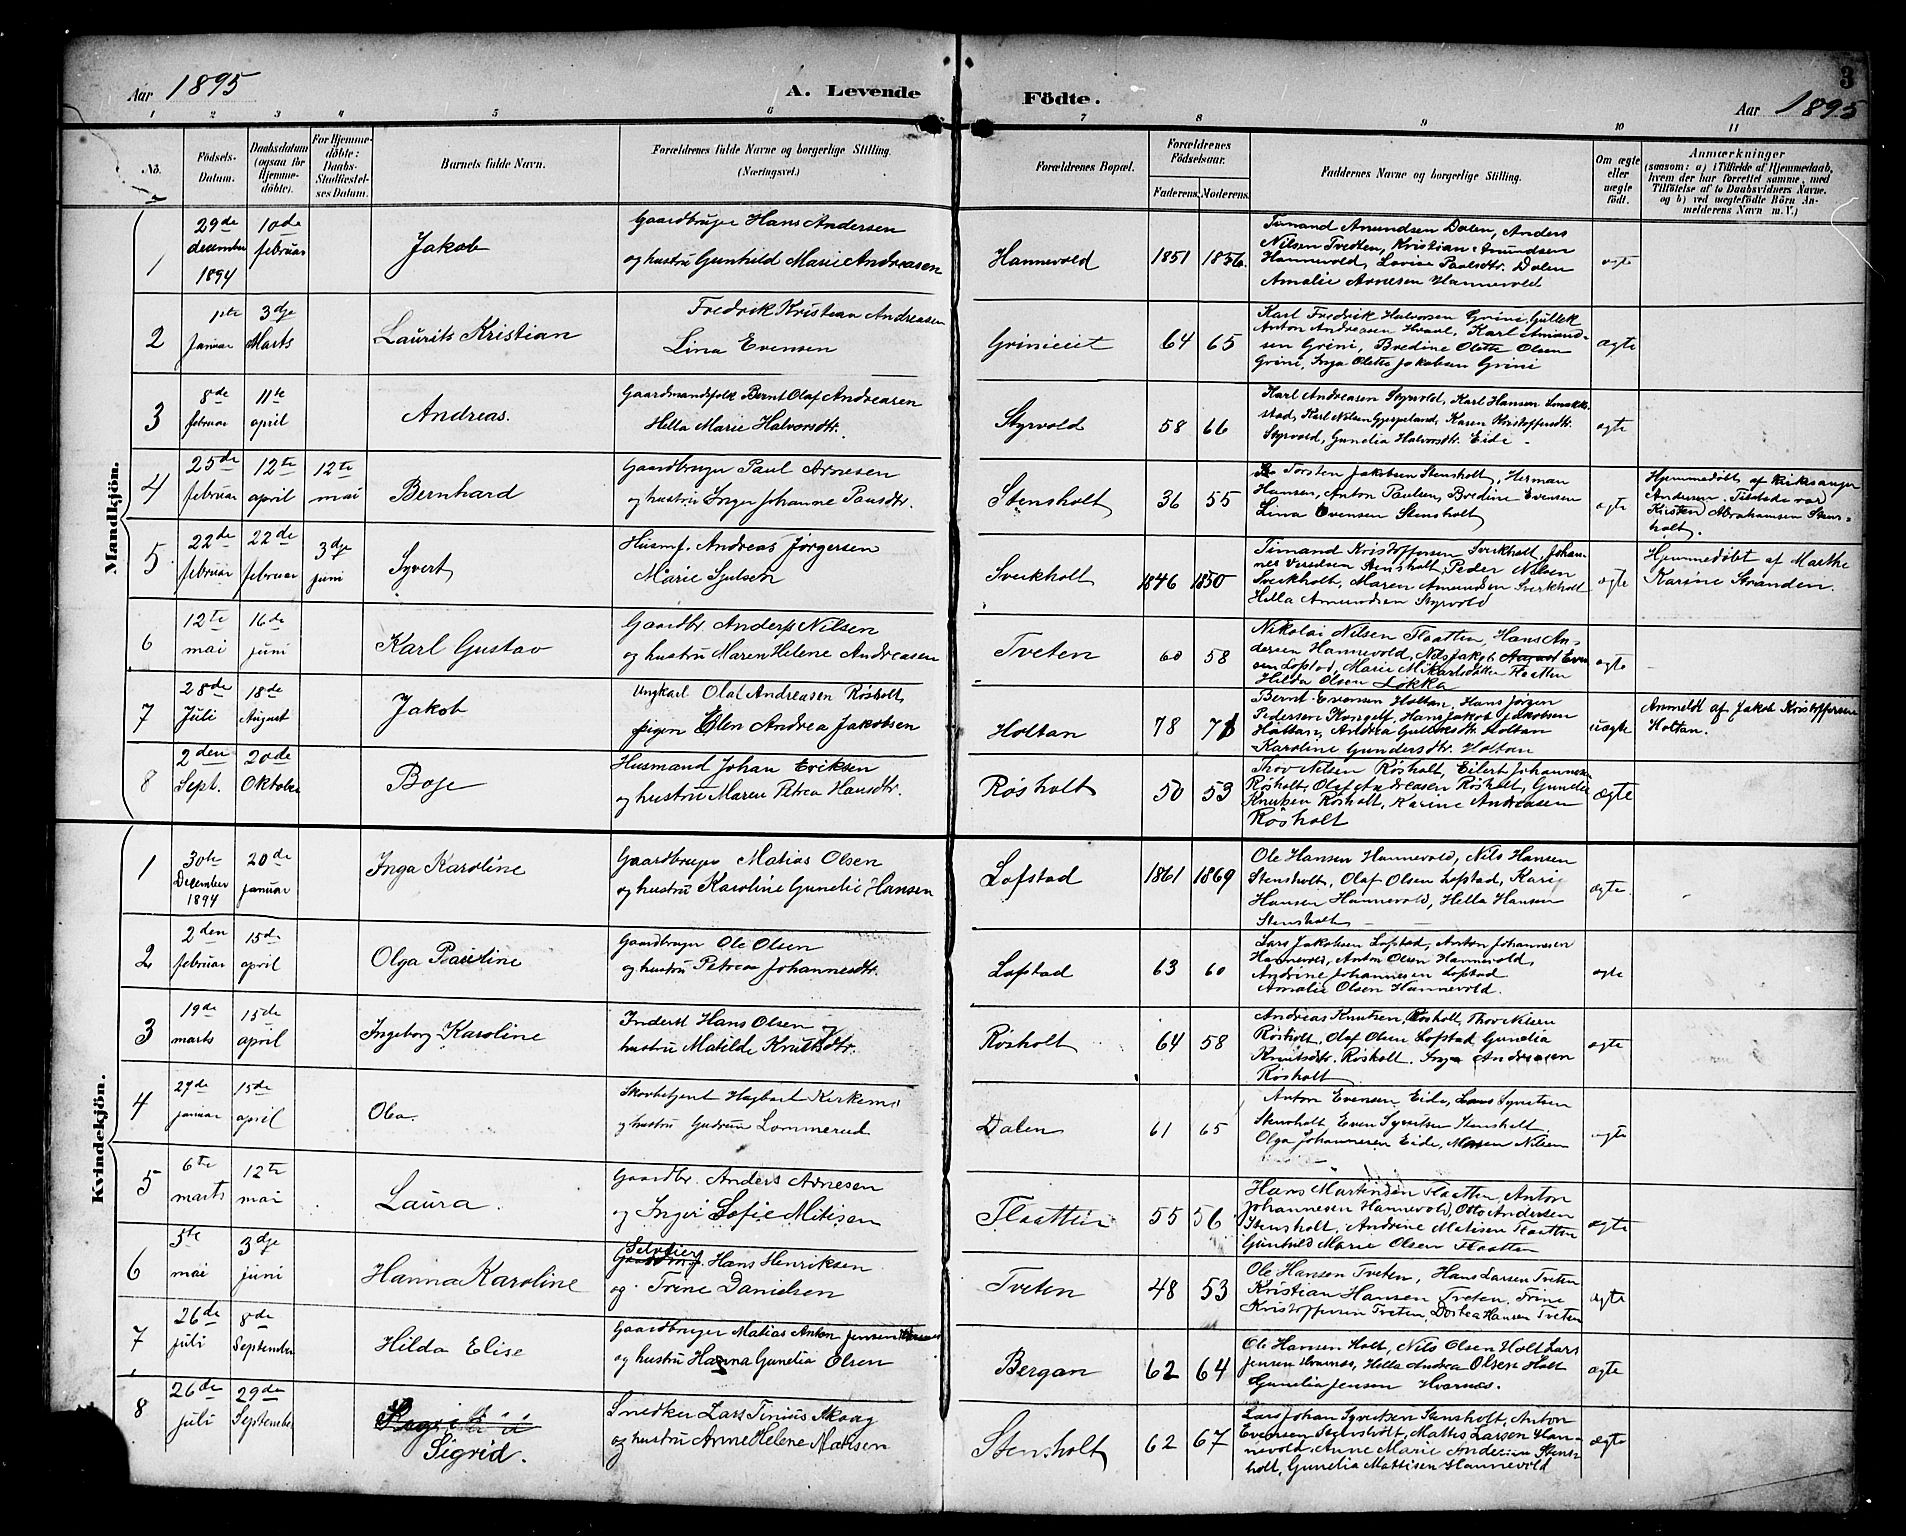 Aar 1895
A. Levende
Födte.
3
Aar 1895
1 2 3 4 5 6 7 8 9 10 11
No.
Födsels-
Datum.
Daabsdatum
(ogsaa for
Hjemme-
döbte).
For Hjemme-
döbte:
Daabs-
Stadfæstel-
ses Datum.
Barnets fulde Navn.
Forældrenes fulde Navne og borgerlige Stilling.
(Næringsvei.)
Forældrenes Bopæl.
Forældrenes
Födselsaar.
Faderens. Moderens.
Faddernes Navne og borgerlige Stilling.
Om ægte
eller
uægte
født.
Anmærkninger
(saasom: a) i Tilfælde af Hjemmedaab,
hvem der har forrettet samme, med
Tilföielse af to Daabsvidners Navne,
og b) ved uægtefödte Börn An-
melderens Navn m. V.)
Mandkjön.
1
29de
december
1894
10de
februar
Jakob
Gaardbruger Hans Andersen
og hustru Gunhild Marie Andreasen
Hannevold
1851 1856.
Timand Amundsen Dalen, Anders
Nilsen Tvedten, Kristian Amundsen
Hannevold, Lovise Paalsdtr. Dalen
Amalie Arnesen Hannevold
ægte
2
1ste
Januar
3dje
Marts
Laurits Kristian
Fredrik Kristian Andreasen
Lina Evensen
Grinieiet
64 65
Karl Fredrik Halvorsen Grini, Gullek
Anton Andreasen Hvaal, Karl Amund-
sen Grini, Bredine Olette Olsen
Grini, Inga Olette Jakobsen Grini
ægte
3
8de
februar
11te
april
Andreas.
Gaardmandsfolk Bernt Olaf Andreasen
Hella Marie Halvorsdtr.
Styrvold
58 66
Karl Andreasen Styrvold, Karl Hansen
stad, Karl Nilsen Gjerpeland, Karen Kristoffersdtr.
Styrvold, Gunelia Halvorsdtr. Eide -
ægte
4
25de
februar
12te
april
12te
mai
Bernhard
Gaardbruger Paul Arnesen
og hustru Inger Johanne Paulsdtr.
Stensholt
36 55
Torsten Jakobsen Stensholt, Herman
Hansen, Anton Paulsen, Bredine Evensen
Lina Evensen Stensholt
ægte
Hjemmedøbt af Kirksanger
Andersen. Tilstede var
Kirsten Abrahamsen Stens-
holt.
5
22de
februar
22de
februar
3dje
juni
Syvert
Husmf. Andreas Jörgersen
Marie
Sverkholt
1846 1850
Timand Kristoffersen Sverkholt, Johan-
nes Stensholt, Peder Nilsen
Sverkholt, Maren Amundsen Sverkholt
Hella Amundsen Styrvold
ægte
Hjemmedöbt af Marthe
Karine Stranden.
6
12te
mai
16de
juni
Karl Gustav
Gaardbr. Anders Nilsen
og hustru Maren Helene Andreasen
Tveten
60 58
Nikolai Nilsen Flaatten, Hans An-
dersen Hannevold, Nils Jakob August Even
sen Lofstad, Marie Mikaelsdatter Flaatten
Hilda Olsen Løkka
ægte
7
28de
Juli
18de
August
Jakob
Ungkarl Olaf Andreasen Røsholt
pigen Elen Andrea Jakobsen
Holtan
78 71
Bernt Evensen Holtan, Hans Jørgen
Pedersen Kongelf, Hans Jakob Jakobsen
Holtan, Andrea Gulliksdtr. Holtan
Karoline Gundersdtr. Holtan
uægte
Anmeldt af Jakob Kristoffersen
Holtan.
8
2den
Sept.
20de
Oktober
Boje
Husmand Johan Eriksen
og hustru Maren Petrea Hansdtr.
Røsholt
50 53
Thov Nilsen Røsholt, Eilert Johannesen
Røsholt, Olaf Andreasen Røsholt, Gunelie
Knutsen Røsholt, Karine Andreasen
Røsholt
ægte
Kvindekjön.
1
30te
December
1894
20de
januar
Inga Karoline
Gaardbruger Matias Olsen
og hustru Karoline Gunelie Hansen
Lofstad
1861 1869
Ole Hansen Hannevold, Nils Hansen
Stensholt, Olaf Olsen Lofstad, Kari
Hansen Hannevold, Hella Hansen
Stensholt
ægte.
2
2den
februar
15de
april
Olga Pauline
Gaardbruger Ole Olsen
og hustru Petrea Johannesdtr.
Lofstad
63 60
Lars Jakobsen Lofstad, Anton Johannesen
Hannevold, Anton Olsen Hannevold,
Andrine Johannesen Lofstad
Amalie Olsen Hannevold.
ægte
3
19de
marts
15de
april
Ingeborg Karoline
Inderst Hans Olsen og
hustru Matilde Knutsdtr.
Røsholt
64 58
Andreas Knutsen, Røsholt, Thov Nilsen
Røsholt, Olaf Olsen Lofstad Gunelia
Knutsdtr. Røsholt. Inga Andreasen
Røsholt
ægte
4
27de
januar
15de
april
Oba.
Skovbetjent Hagbart
og hustru Gudrun Lommerud
Dalen
61 65
Anton Evensen Eide, Lars Syvertsen
Stensholt Even Syvertsen Stensholt
Olga Johannesen Eide, Maren Nilsen
ægte
5
6te
marts
12te
mai
Laura.
Gaardbr. Anders Arnesen
og Inger Sofie Mitisen
Flaatten
55 56
Hans Martinsen Flaatten, Anton
Johannesen Hannevold, Otto Andersen
Stensholt, Andrine Matisen Flaatten
Gunhild Marie Olsen Flaatten
ægte
6
5te
mai
3dje
juni
Hanna Karoline
Selveier
Hans Henriksen
og. Trine Danielsen
Tveten
48 53
Ole Hansen Tveten, Hans Larsen Tveten
Kristian Hansen Tveten, Trine
Kristoffersen Tveten, Dortea Hansen Tveten
ægte
7
26de
juli
8de
September
Hilda Elise
Gaardbruger Matias Anton Jensen
og hustru Hanna Gunelia Olsen
Bergan
62 64
Ole Hansen Holt, Nils Olsen Holt Lars
Jensen Hvarnes, Hella Andrea Olsen Holt
Gunelia Jensen Hvarnes.
ægte
8
26de
juli
29de
September
Sigrid.
Snedker Lars Tinius Skoag
og hustru Anne Helene Matisen
Stensholt
62 67
Lars Johan Syvertsen Stensholt, Anton
Evensen Stensholt, Mattis Larsen Han-
nevold, Anne Marie Andersen Stens-
holt, Gunelia Mattisen Hannevold
ægte